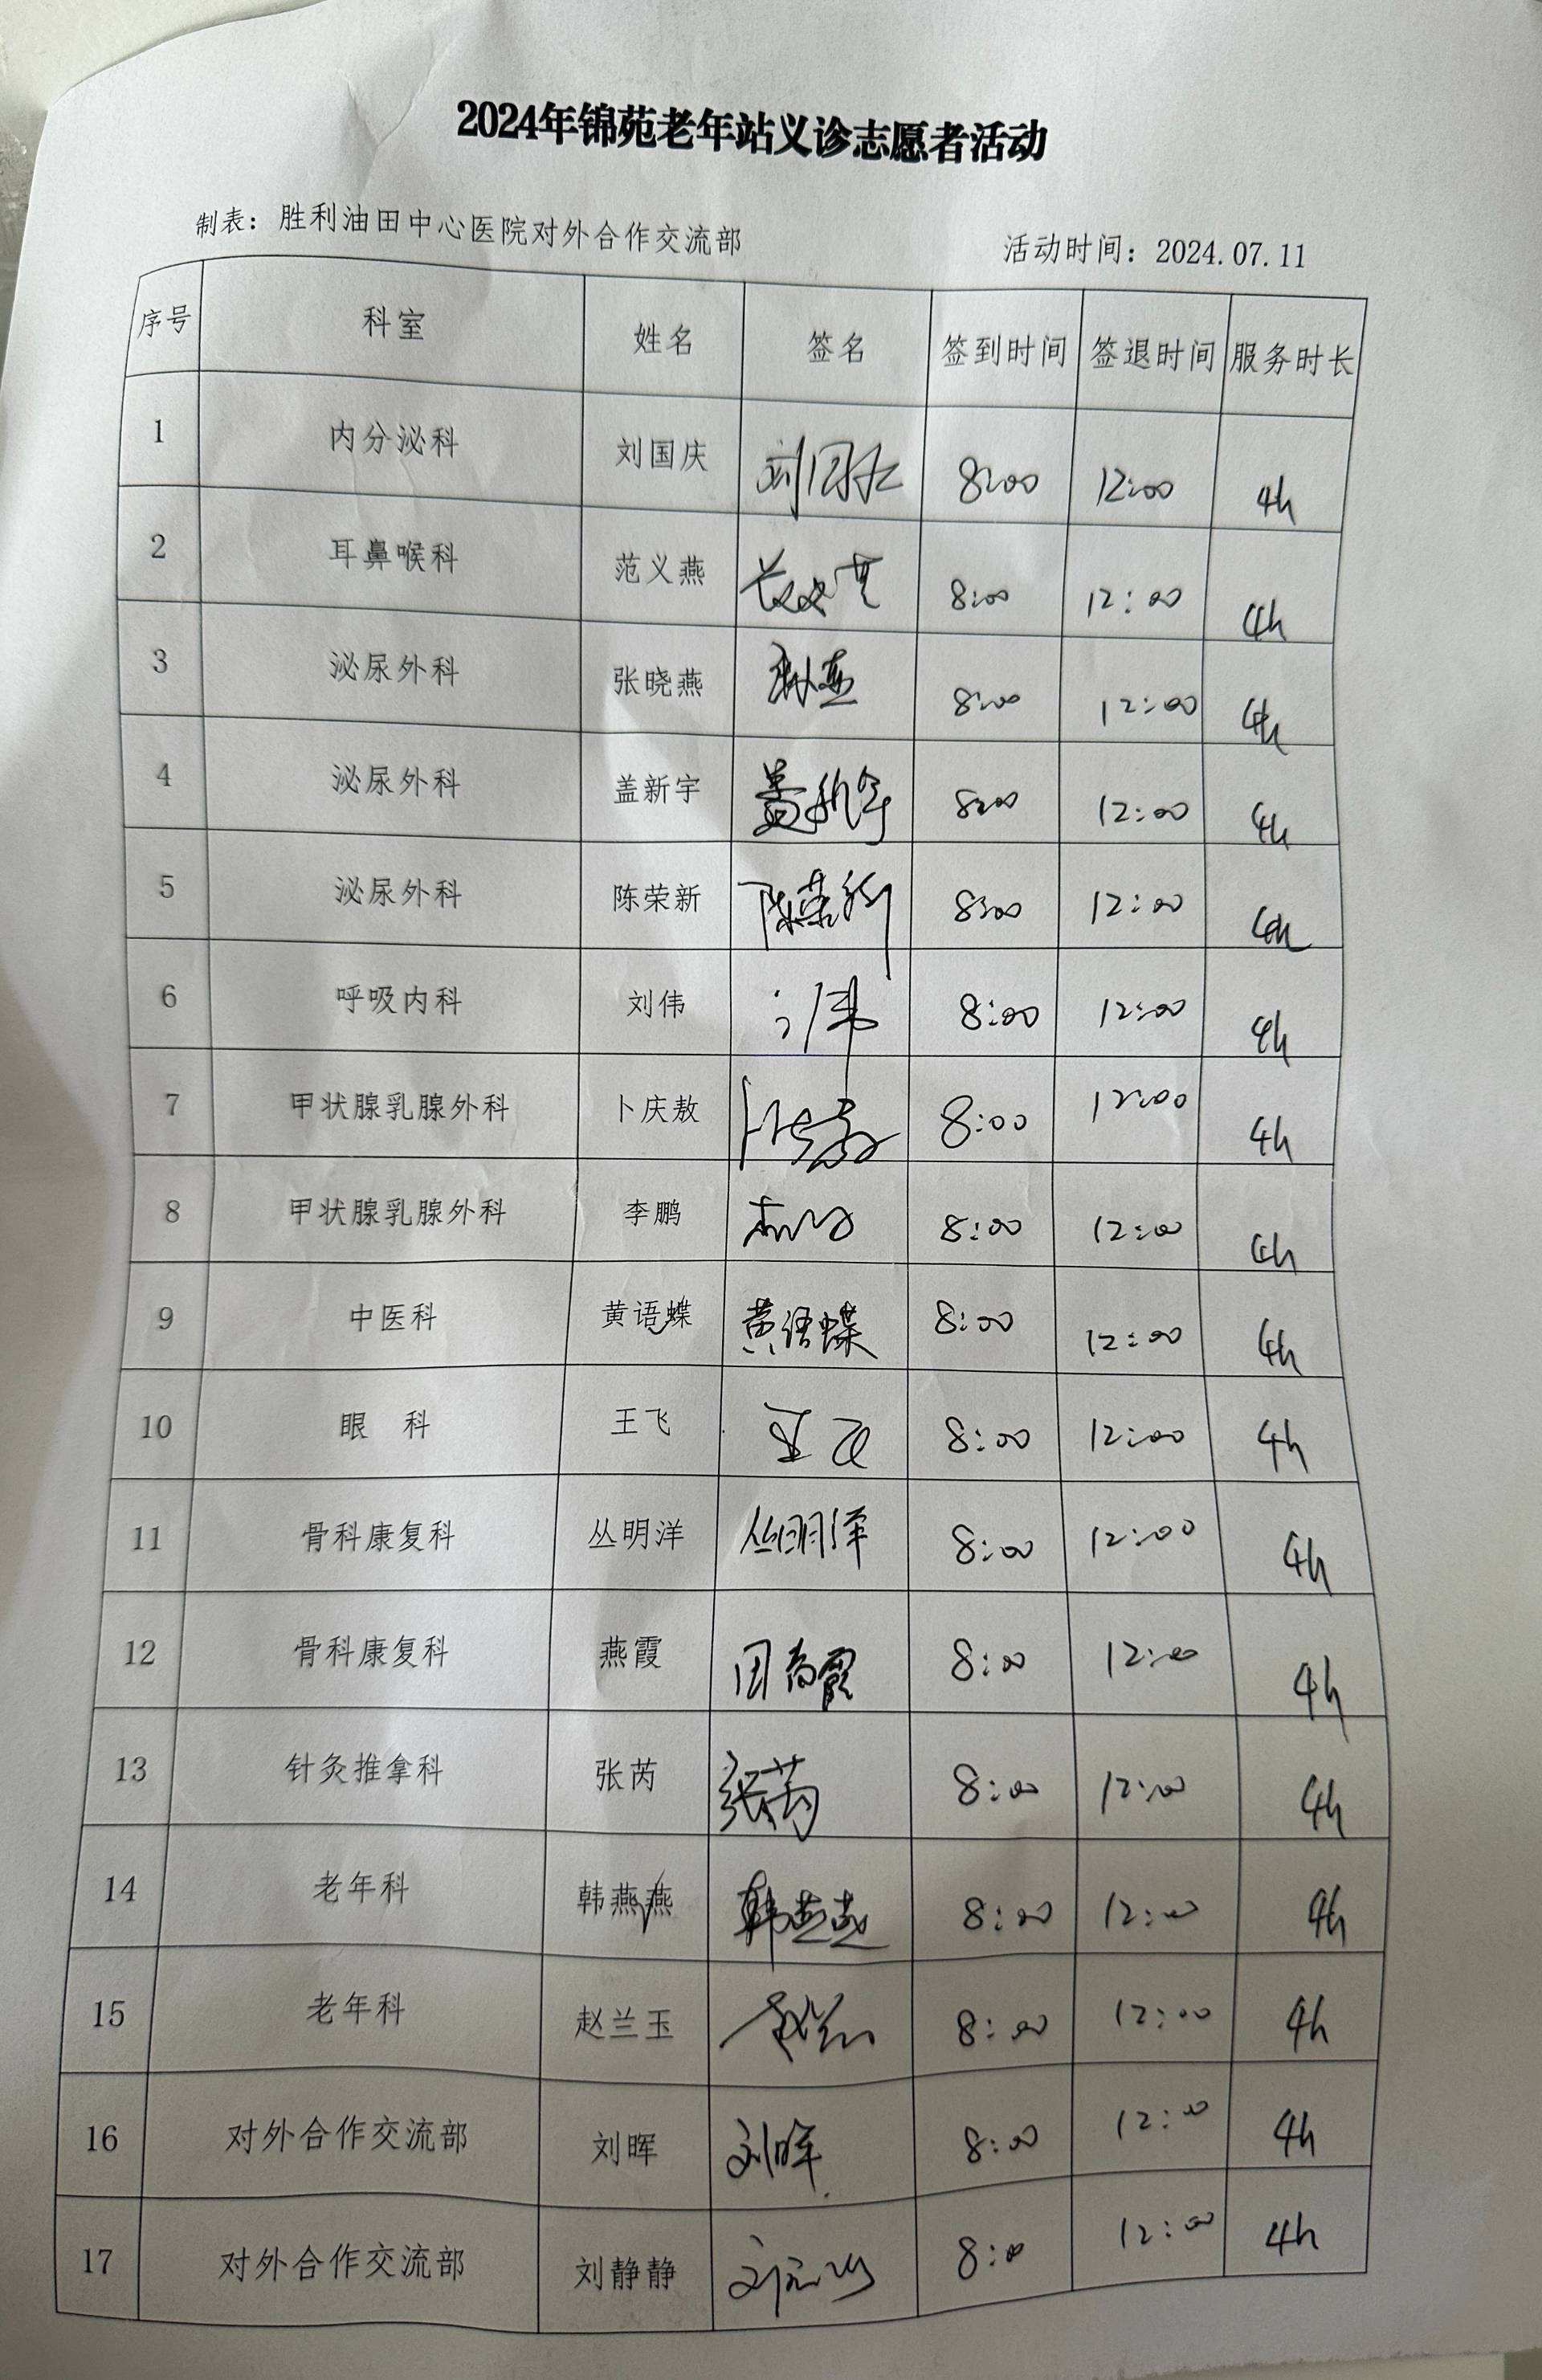 2024年锦苑老年站义诊志愿者活动
制表：胜利油田中心医院对外合作交流部 活动时间：2024.07.11
序号 科室 姓名 签名 签到时间 签退时间 服务时长
1 内分泌科 刘国庆 刘国庆 8:00 12:00 4h
2 耳鼻喉科 范义燕 8:00 12:00 4h
3 泌尿外科 张晓燕 8:00 12:00 4h
4 泌尿外科 盖新宇 盖新宇 8:00 12:00 4h
5 泌尿外科 陈荣新 陈荣新 8:00 12:00 4h
6 呼吸内科 刘伟 刘伟 8:00 12:00 4h
7 甲状腺乳腺外科 卜庆敖 卜庆敖 8:00 12:00 4h
8 甲状腺乳腺外科 李鹏 李鹏 8:00 12:00 4h
9 中医科 黄语蝶 黄语蝶 8:00 12:00 4h
10 眼 科 王飞 王飞 8:00 12:00 4h
11 骨科康复科 丛明洋 丛明洋 8:00 12:00 4h
12 骨科康复科 燕霞 8:00 12:00 4h
13 针灸推拿科 张芮 张芮 8:00 12:00 4h
14 老年科 韩燕燕 韩燕燕 8:00 12:00 4h
15 老年科 赵兰玉 8:00 12:00 4h
16 对外合作交流部 刘晖 刘晖 8:00 12:00 4h
17 对外合作交流部 刘静静 8:00 12:00 4h